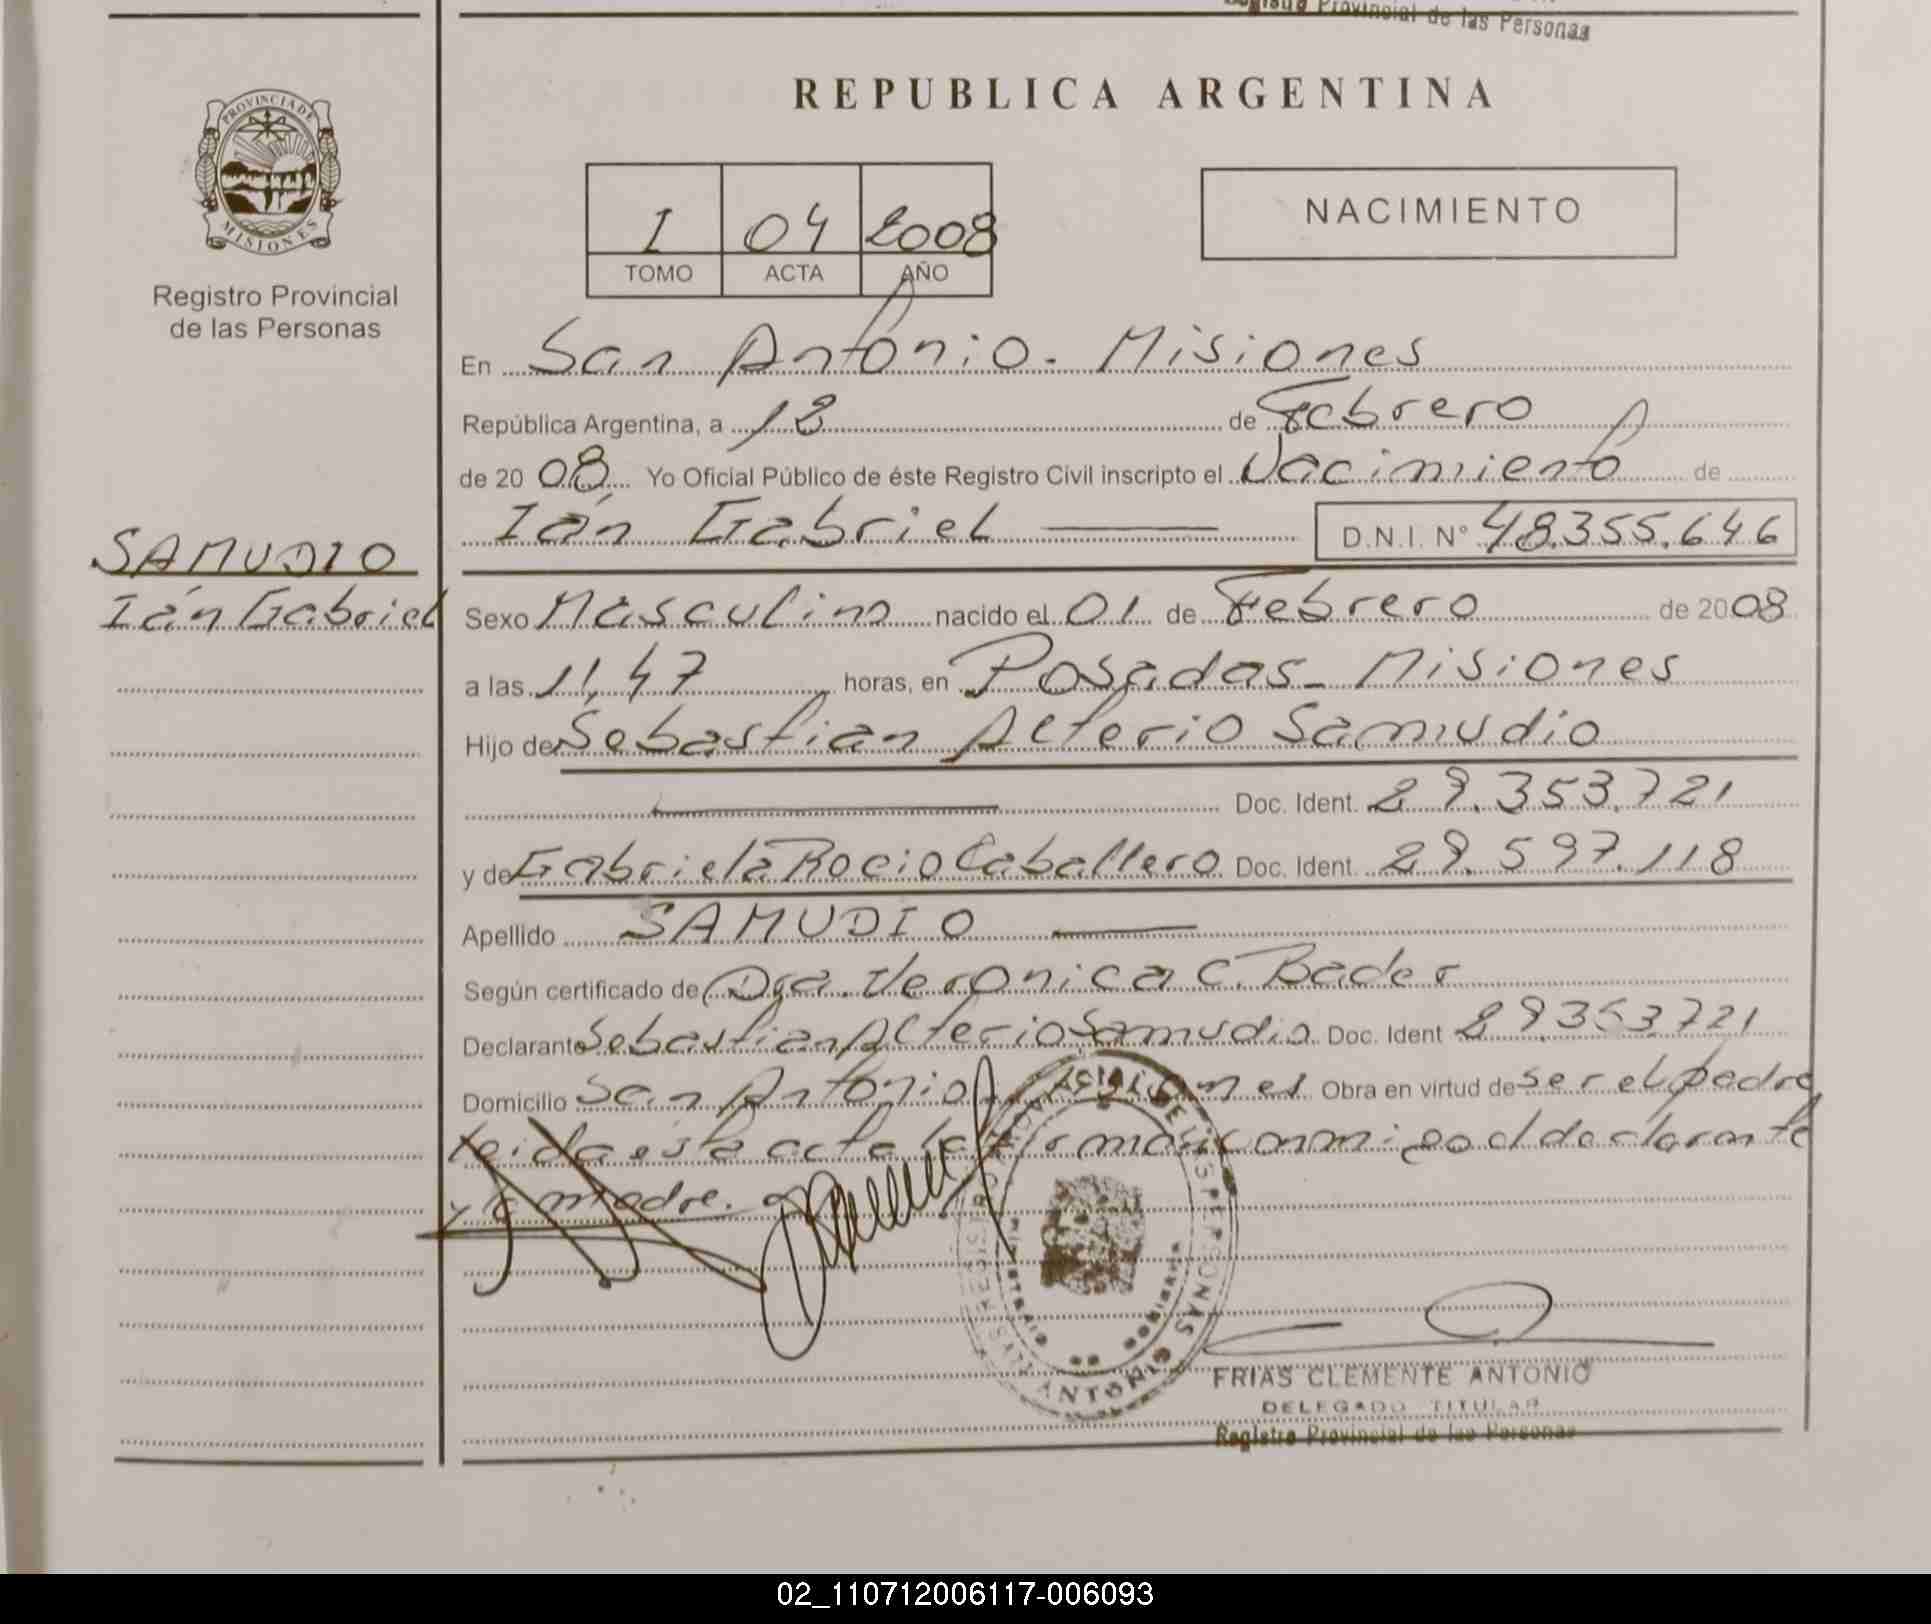 Registro Provincial de las Personas
REPUBLICA ARGENTINA
PROVINCIA DE
MISIONES
Registro Provincial
de las Personas
I 04 2008
TOMO ACTA AÑO
NACIMIENTO
En San Antonio - Misiones
República Argentina, a 12 de Febrero
de 20 08 Yo Oficial Público de éste Registro Civil inscripto el Nacimiento de
Ián Gabriel D.N.I. Nº 48.355.646
SAMUDIO
Ián Gabriel
Sexo Masculino nacido el 01 de Febrero de 20 08
a las 11,47 horas, en Posadas - Misiones
Hijo de Sebastian Alterio Samudio
Doc. Ident. 29.353.721
y de Gabriela Rocio Caballero Doc. Ident. 29.597.118
Apellido SAMUDIO
Según certificado de Dra. Veronica C. Bader
Declarante Sebastian Alterio Samudio Doc. Ident 29353721
Domicilio San Antonio Misiones Obra en virtud de ser el padre
Leida esta acta la firman conmigo el declarante
y la madre.
FRIAS CLEMENTE ANTONIO
DELEGADO TITULAR
Registro Provincial de las Personas
02_110712006117-006093